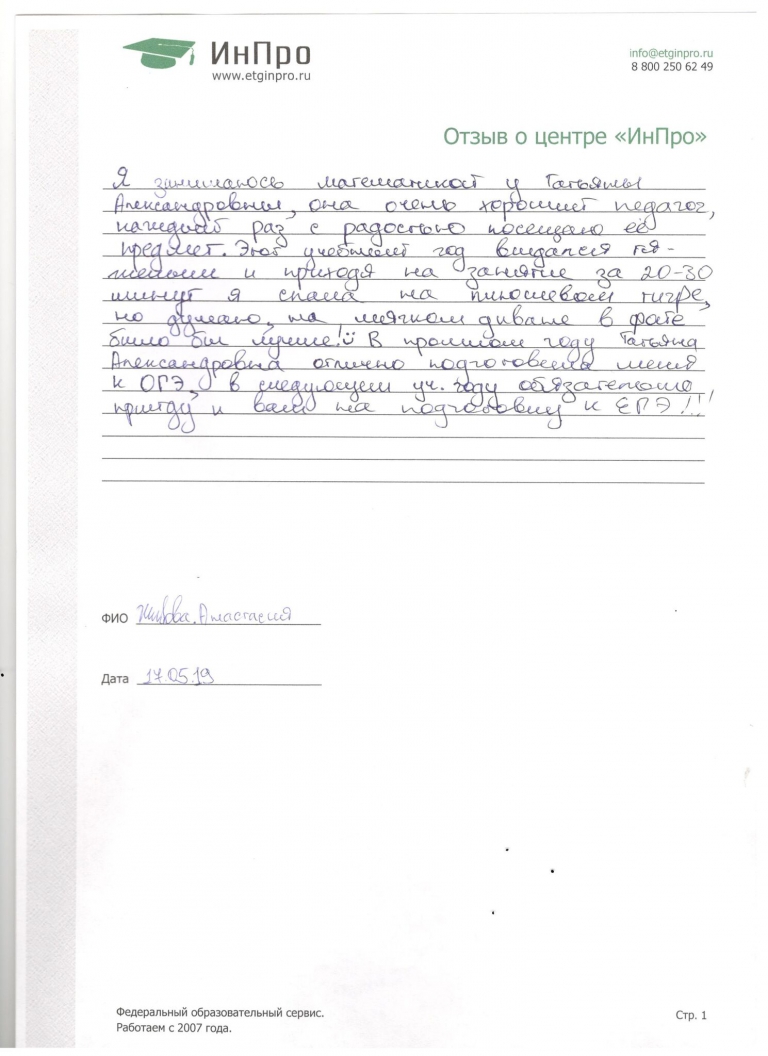 ИнПро
www.etginpro.ru
info@etginpro.ru
8 800 250 62 49
Отзыв о центре «ИнПро»
Я занимаюсь математикой у Татьяны
Александровны, она очень хороший педагог,
каждый раз с радостью посещаю её
предмет. Этот учебный год выдался тя-
желым и приходя на занятие за 20-30
минут я спала на плюшевом тигре,
но думаю, на мягком диване в фойе
было бы лучше! В прошлом году Татьяна
Александровна отлично подготовила меня
к ОГЭ, в следующем уч. году обязательно
приду к вам на подготовку к ЕГЭ!!!
ФИО Анастасия
Дата 17.05.19
Федеральный образовательный сервис.
Работаем с 2007 года.
Стр. 1